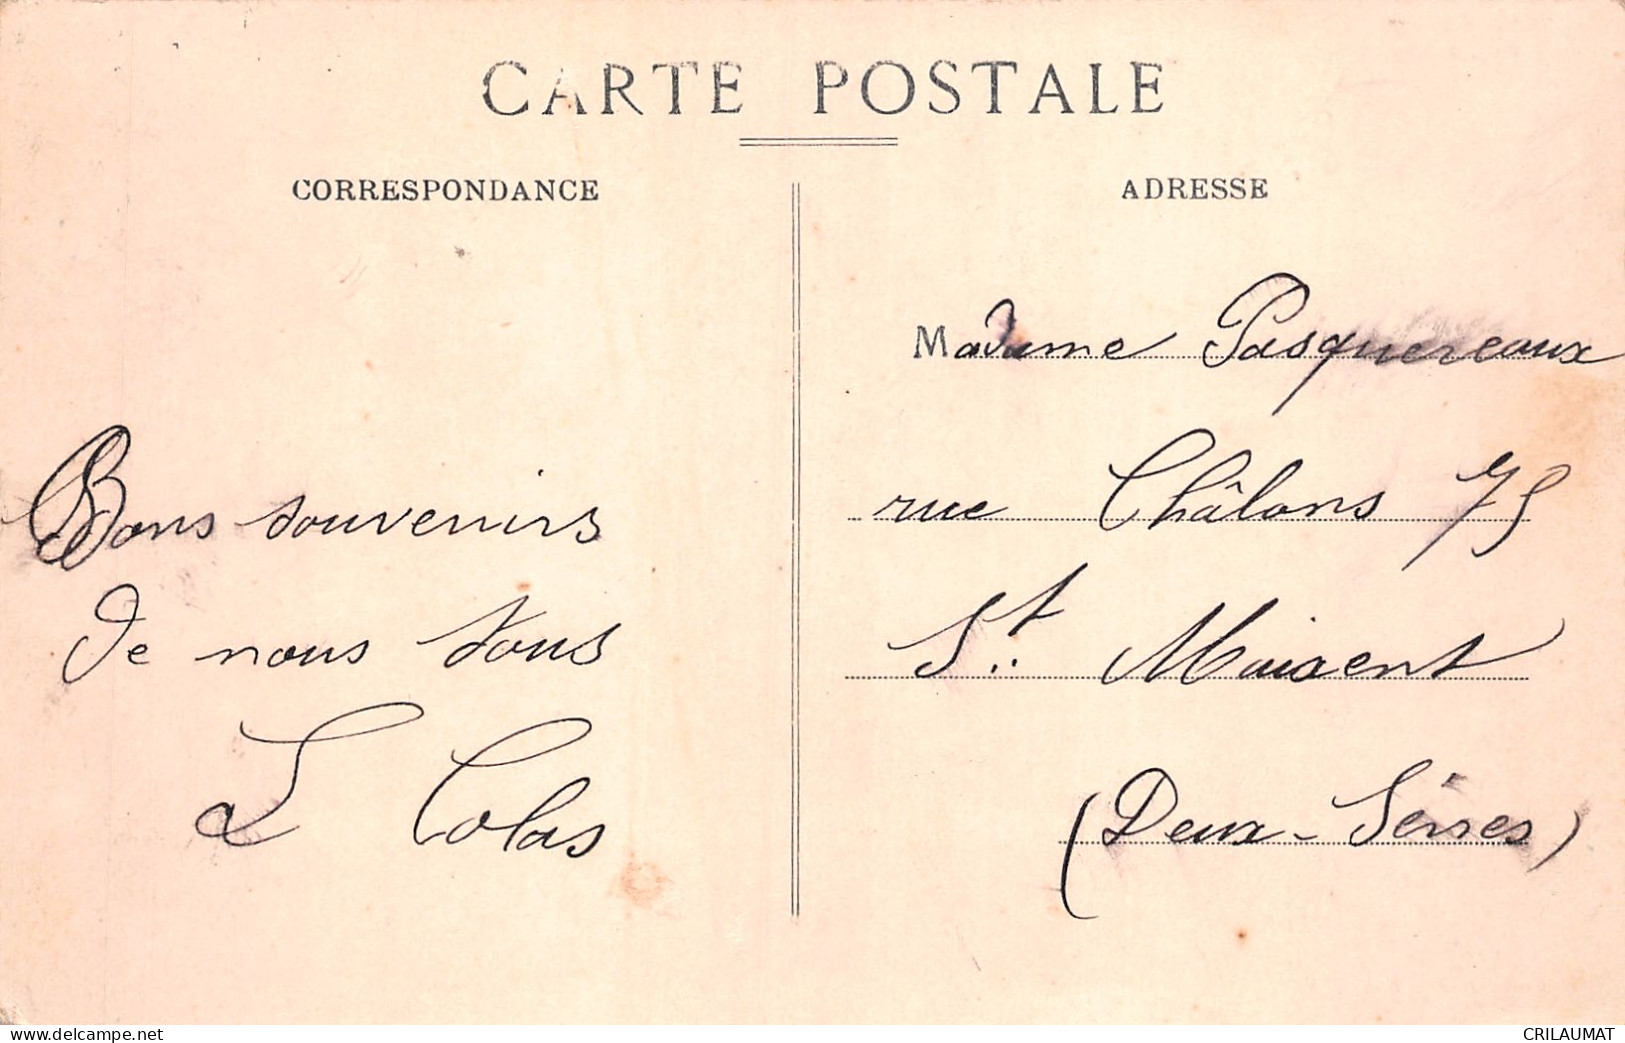 CARTE POSTALE
CORRESPONDANCE
ADRESSE
Bons souvenirs
de nous tous
L Colas
Madame Pasquereaux
rue Châlons 75
St. Maixent
(Deux-Sèvres)
www.delcampe.net
CRILAUMAT